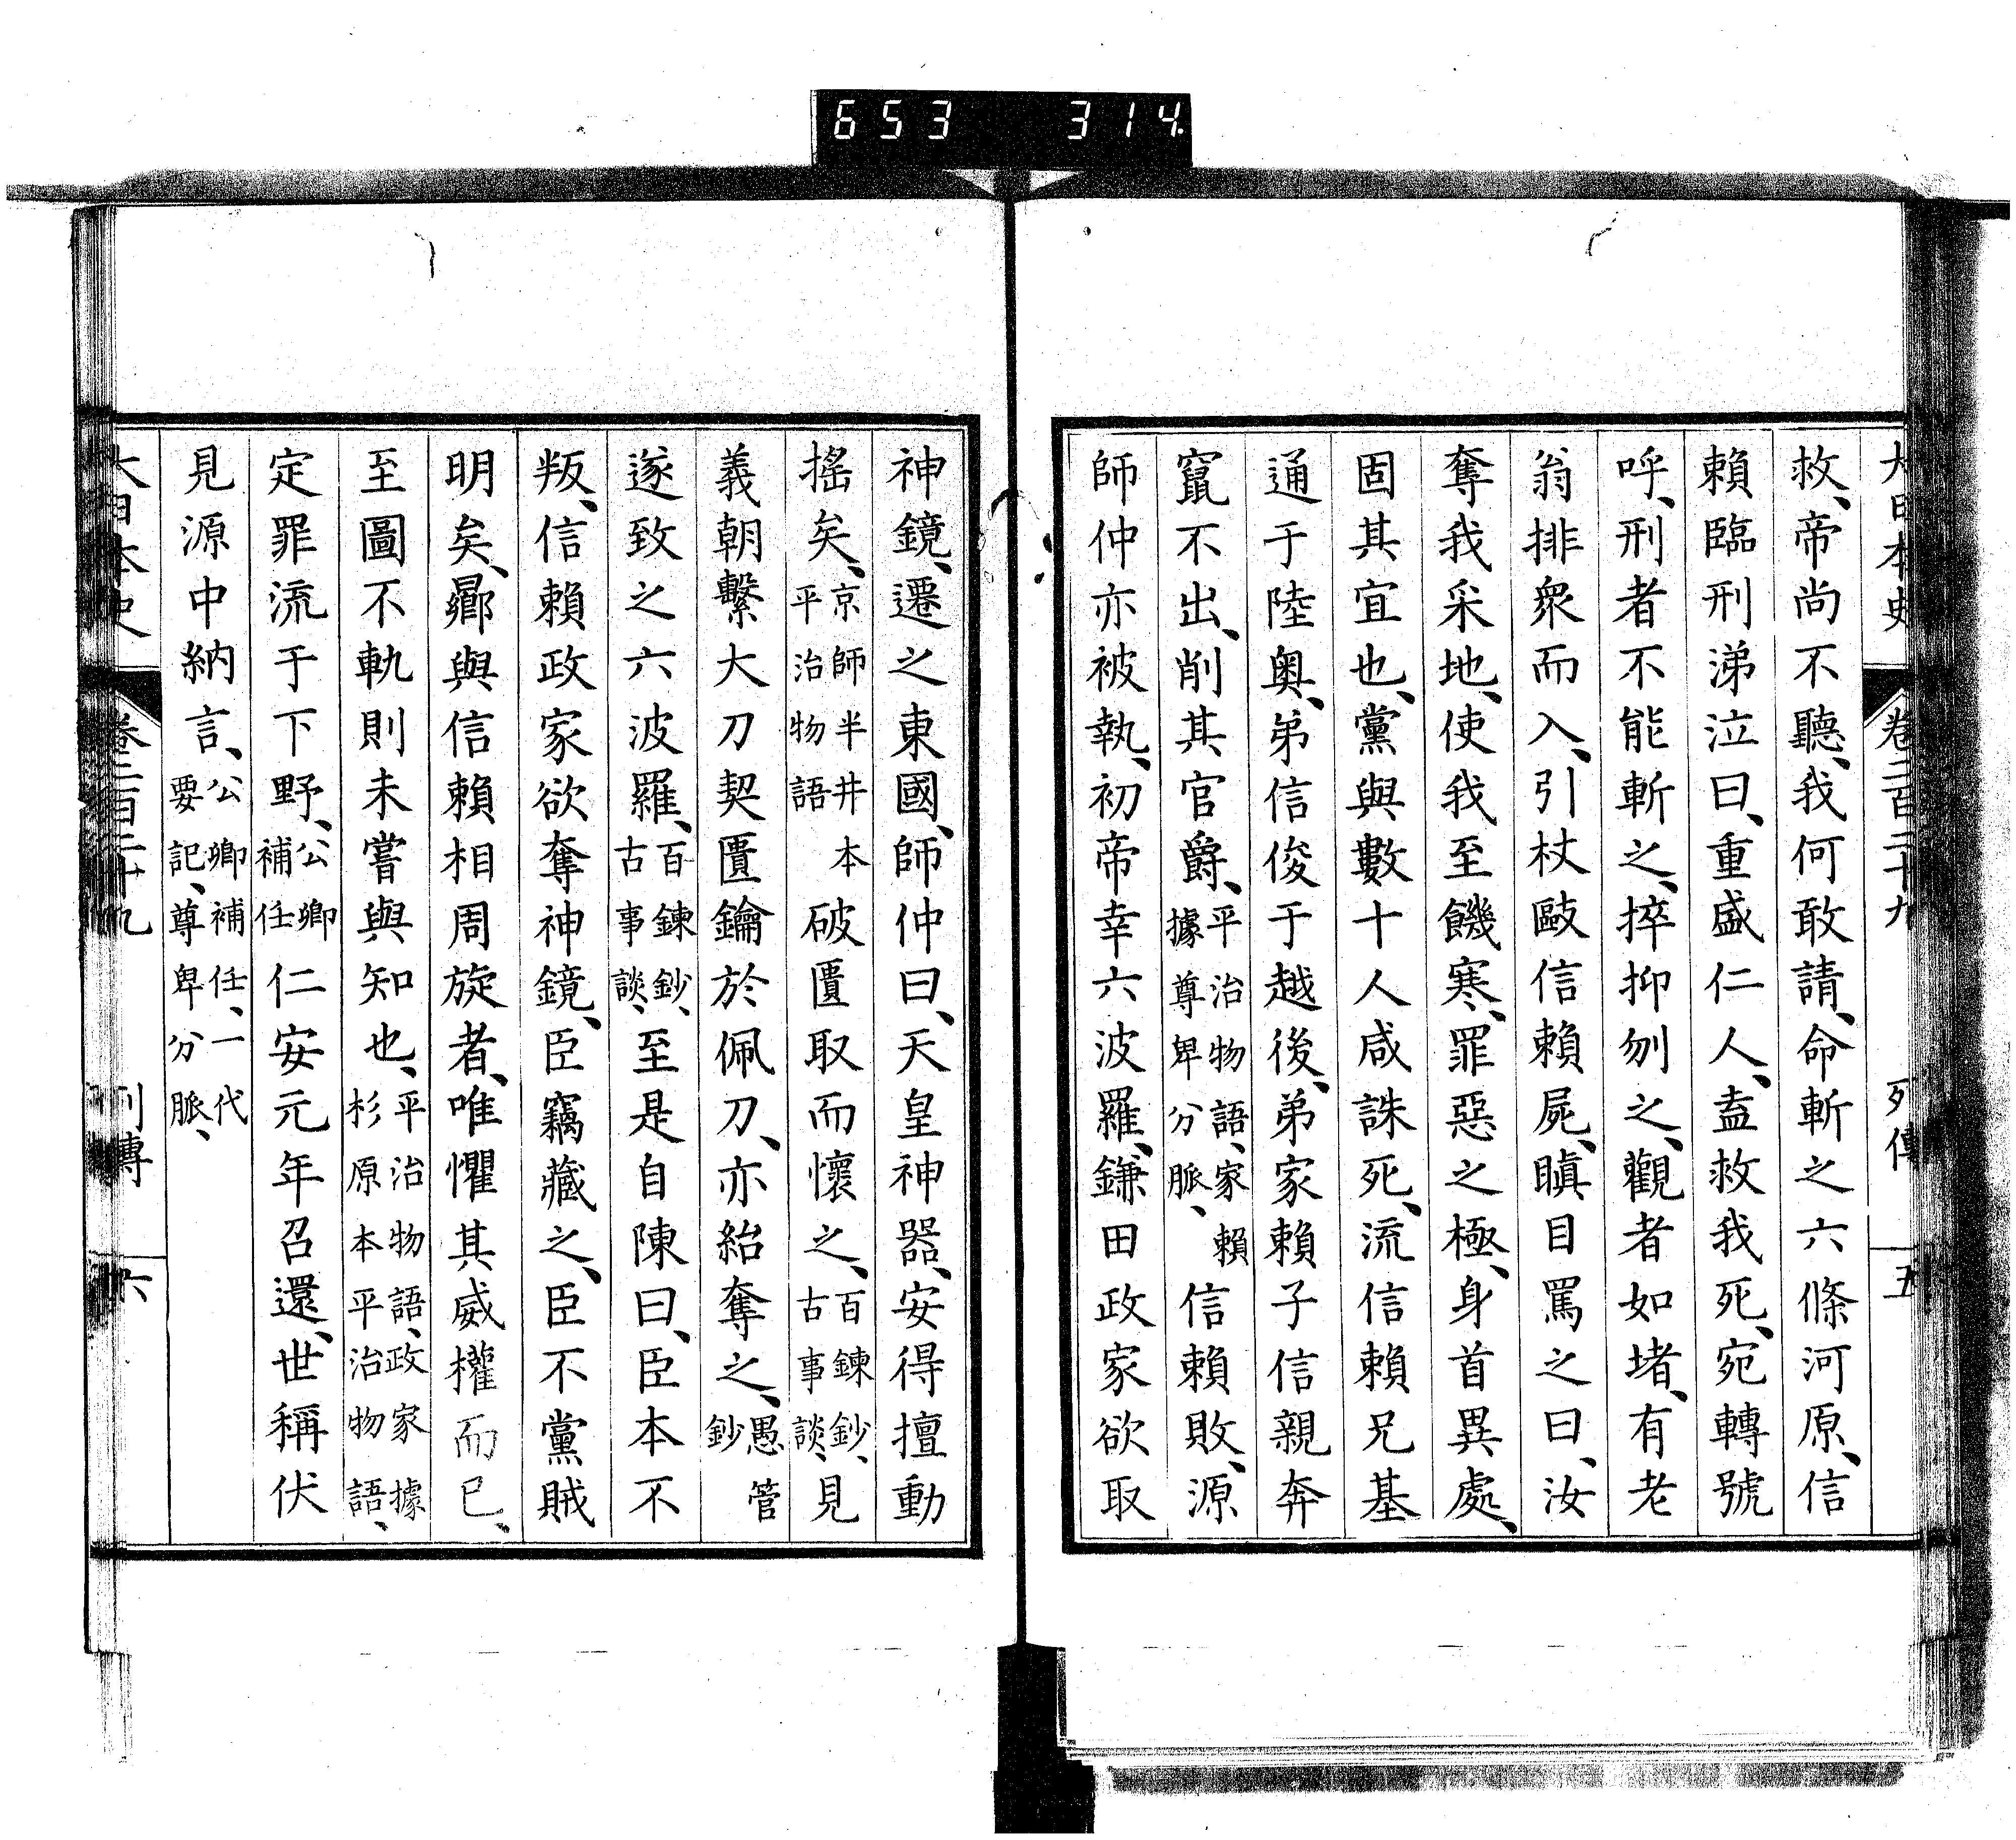 653 314
大日本史 卷二百二十九 列傳 五
救、帝尚不聽、我何敢請、命斬之六條河原、信
賴臨刑涕泣曰、重盛仁人、盍救我死、宛轉號
呼、刑者不能斬之、捽抑刎之、觀者如堵、有老
翁排衆而入、引杖敺信賴屍、瞋目罵之曰、汝
奪我采地、使我至饑寒、罪惡之極、身首異處、
固其宜也、黨與數十人咸誅死、流信賴兄基
通于陸奧、弟信俊于越後、弟家賴子信親奔
竄不出、削其官爵、平治物語、家賴據尊卑分脈、信賴敗、源
師仲亦被執、初帝幸六波羅、鎌田政家欲取
神鏡、遷之東國、師仲曰、天皇神器、安得擅動
搖矣、京師半井本平治物語破匱取而懷之、百鍊鈔、古事談、見
義朝繫大刀契匱鑰於佩刀、亦紿奪之、愚管鈔
遂致之六波羅、百鍊鈔、古事談、至是自陳曰、臣本不
叛、信賴政家欲奪神鏡、臣竊藏之、臣不黨賊
明矣、曏與信賴相周旋者、唯懼其威權而已、
至圖不軌則未嘗與知也、平治物語、政家據杉原本平治物語、
定罪流于下野、公卿補任仁安元年召還、世稱伏
見源中納言、公卿補任、一代要記、尊卑分脈、
大日本史 卷二百二十九 列傳 六